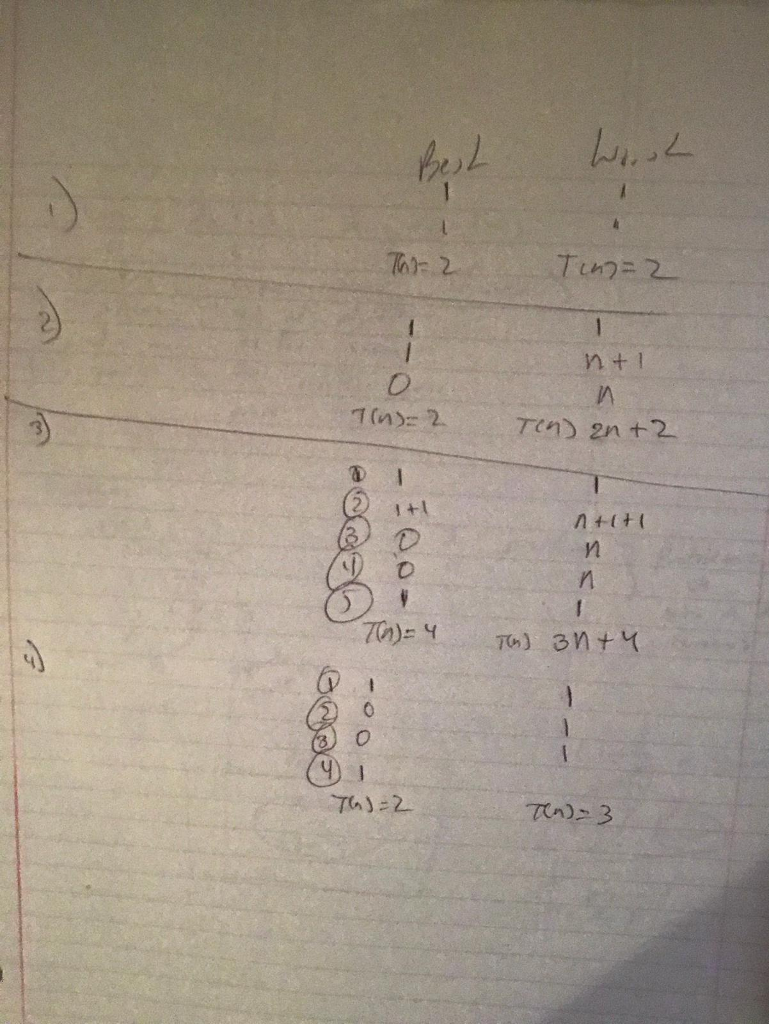 Best Worst
1) 1 1
1 1
T(n)=2 T(n)=2
2) 1 1
1 n+1
0 n
T(n)=2 T(n) 2n+2
3)
① 1 1
② 1+1 n+1+1
③ 0 n
④ 0 n
⑤ 1 1
T(n)=4 T(n) 3n+4
4)
① 1 1
② 0 1
③ 0 1
④ 1
T(n)=2 T(n)=3